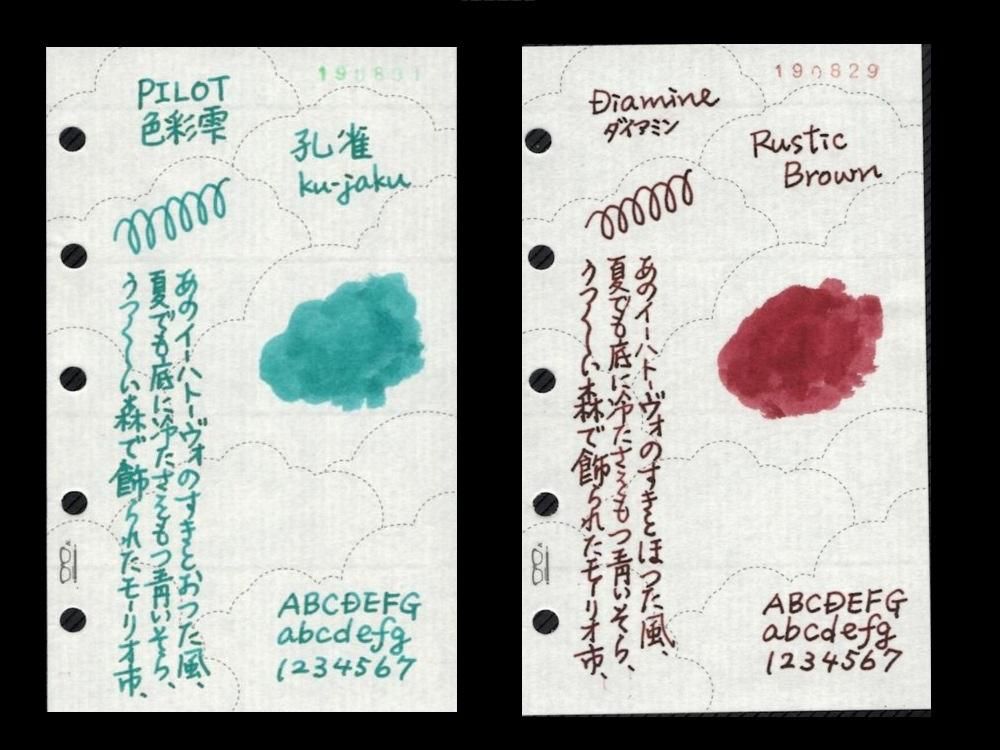 PILOT
色彩雫
孔雀
ku-jaku
あのイーハトーヴォのすきとおつた風、
夏でも底に冷たさをもつ青いそら、
うつくしい森で飾られたモーリオ市、
ABCDEFG
abcdefg
1234567
190829
Diamine
ダイアミン
Rustic
Brown
あのイーハトーヴォのすきとほつた風、
夏でも底に冷たさをもつ青いそら、
うつくしい森で飾られたモーリオ市、
ABCDEFG
abcdefg
1234567